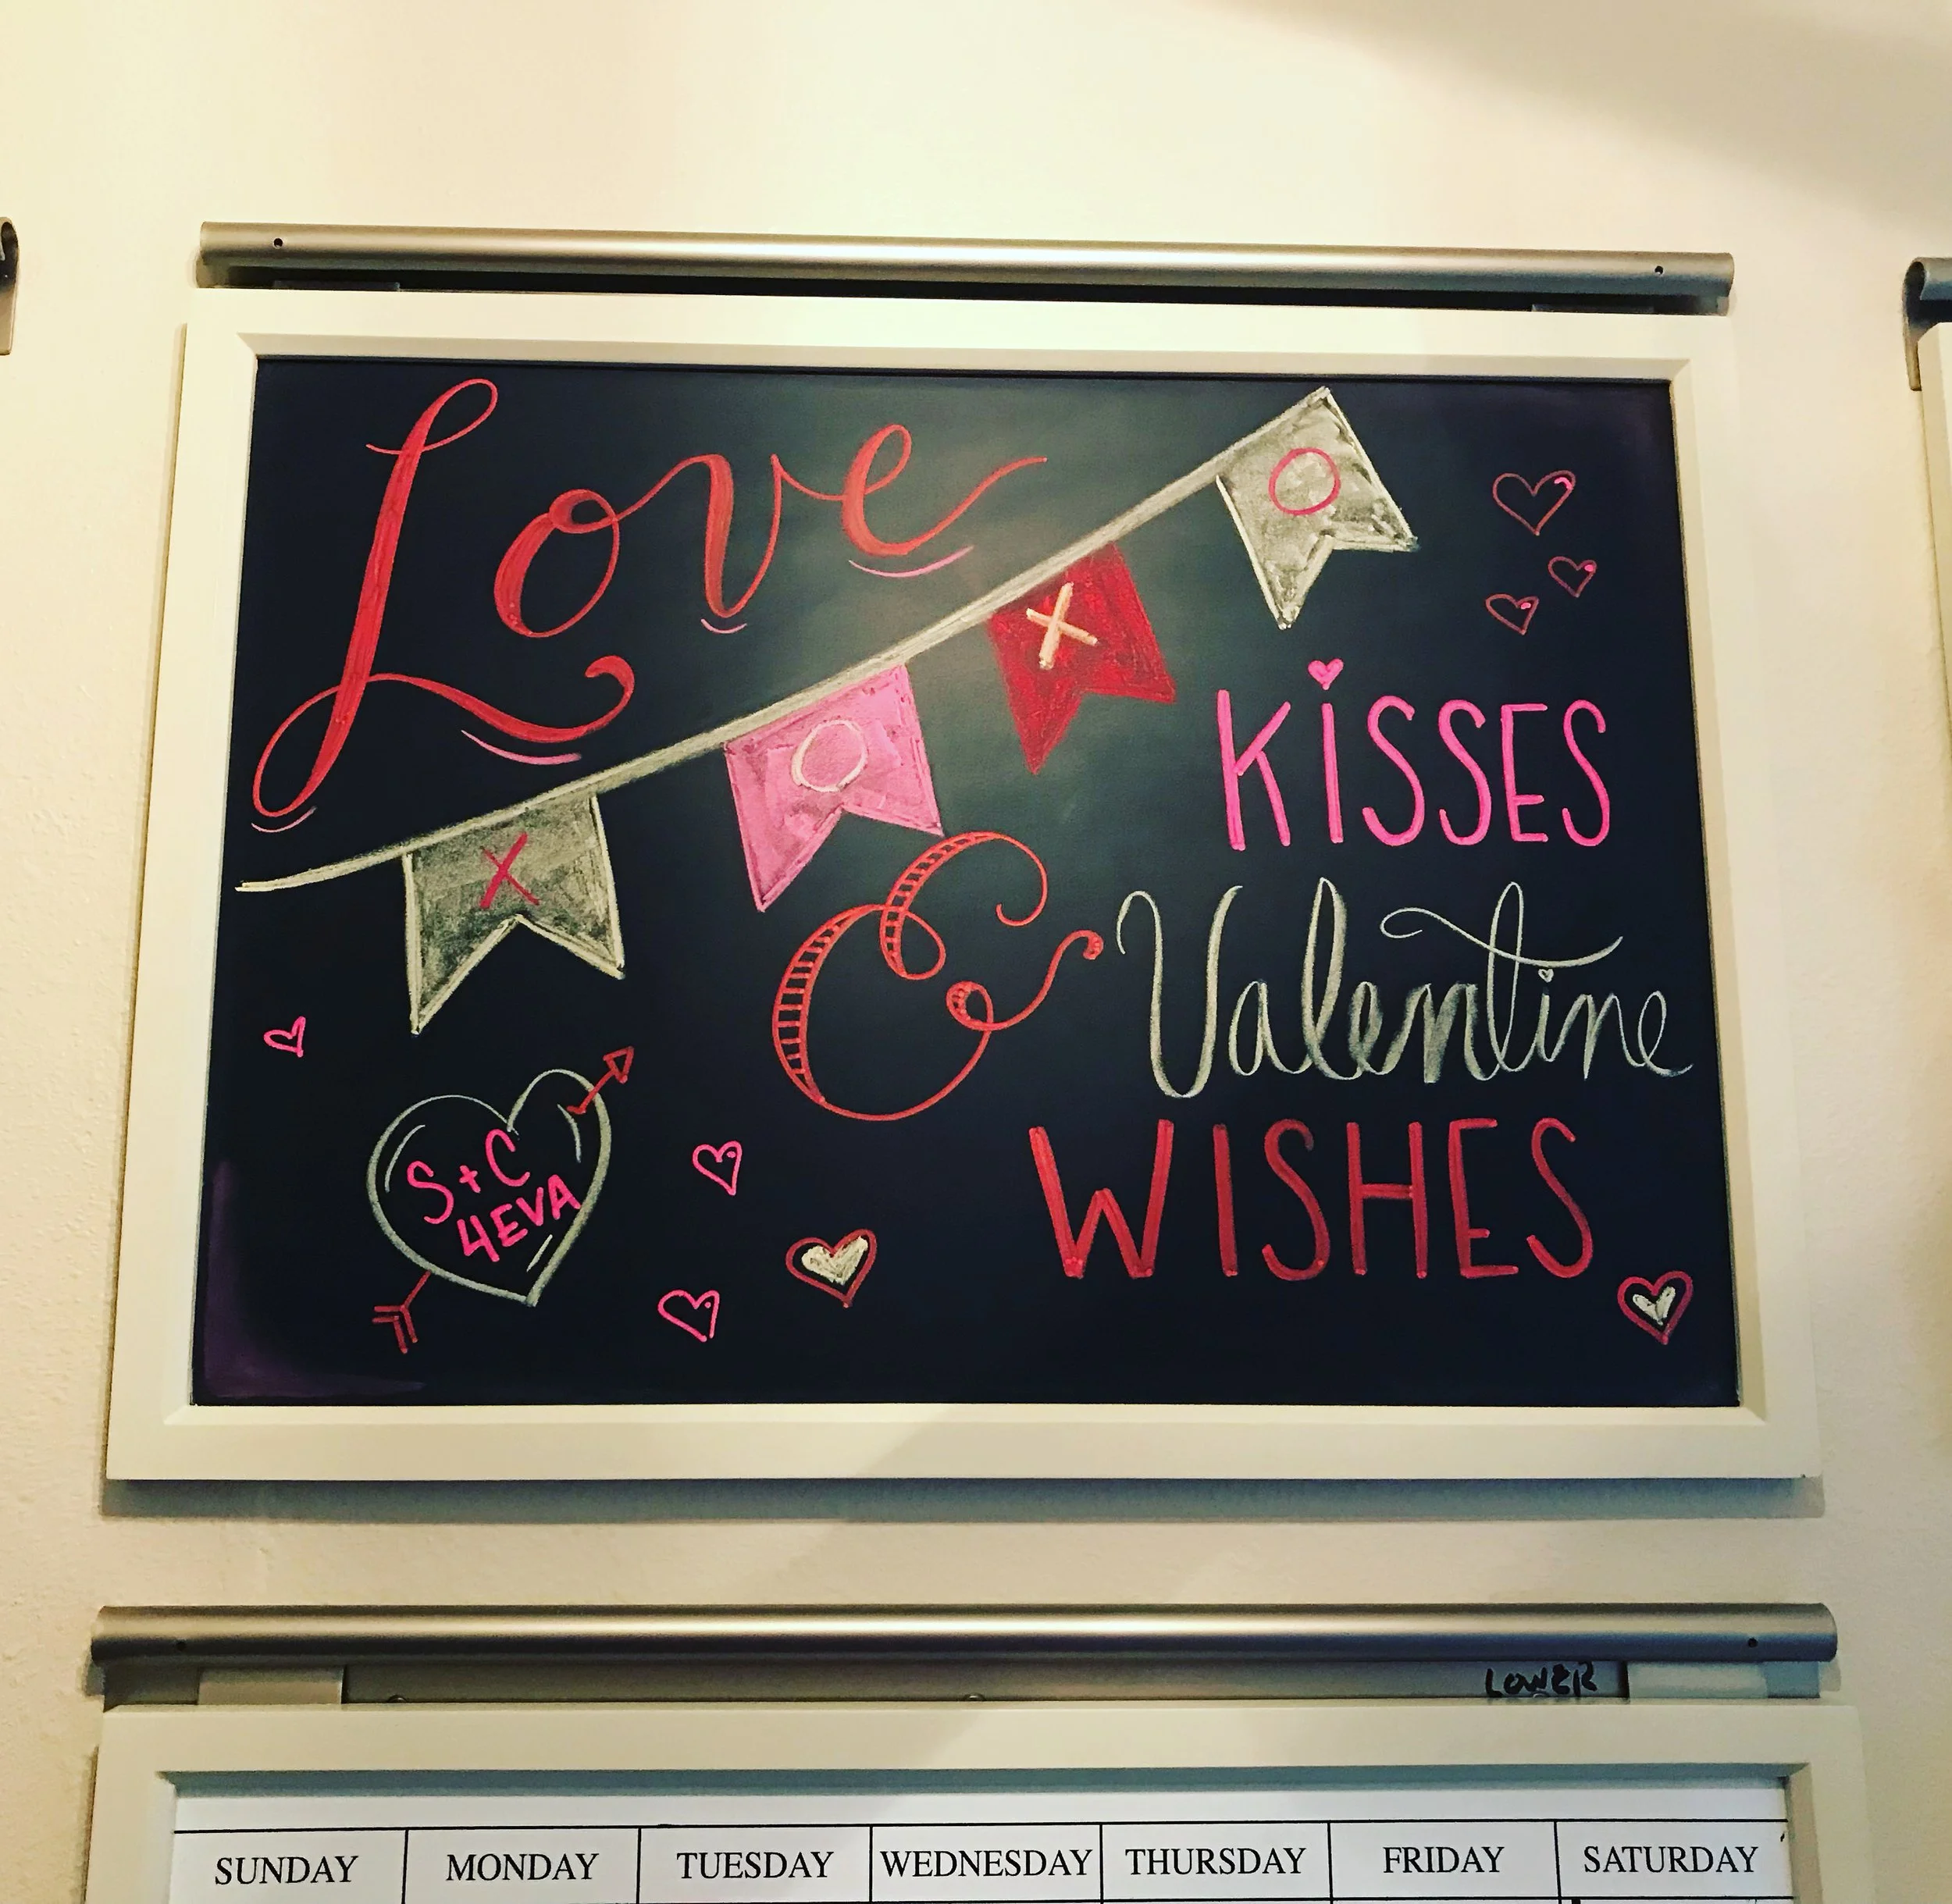 Love
X O X O
KiSSES
& Valentine
WISHES
S+C
4EVA
LOWER
SUNDAY MONDAY TUESDAY WEDNESDAY THURSDAY FRIDAY SATURDAY